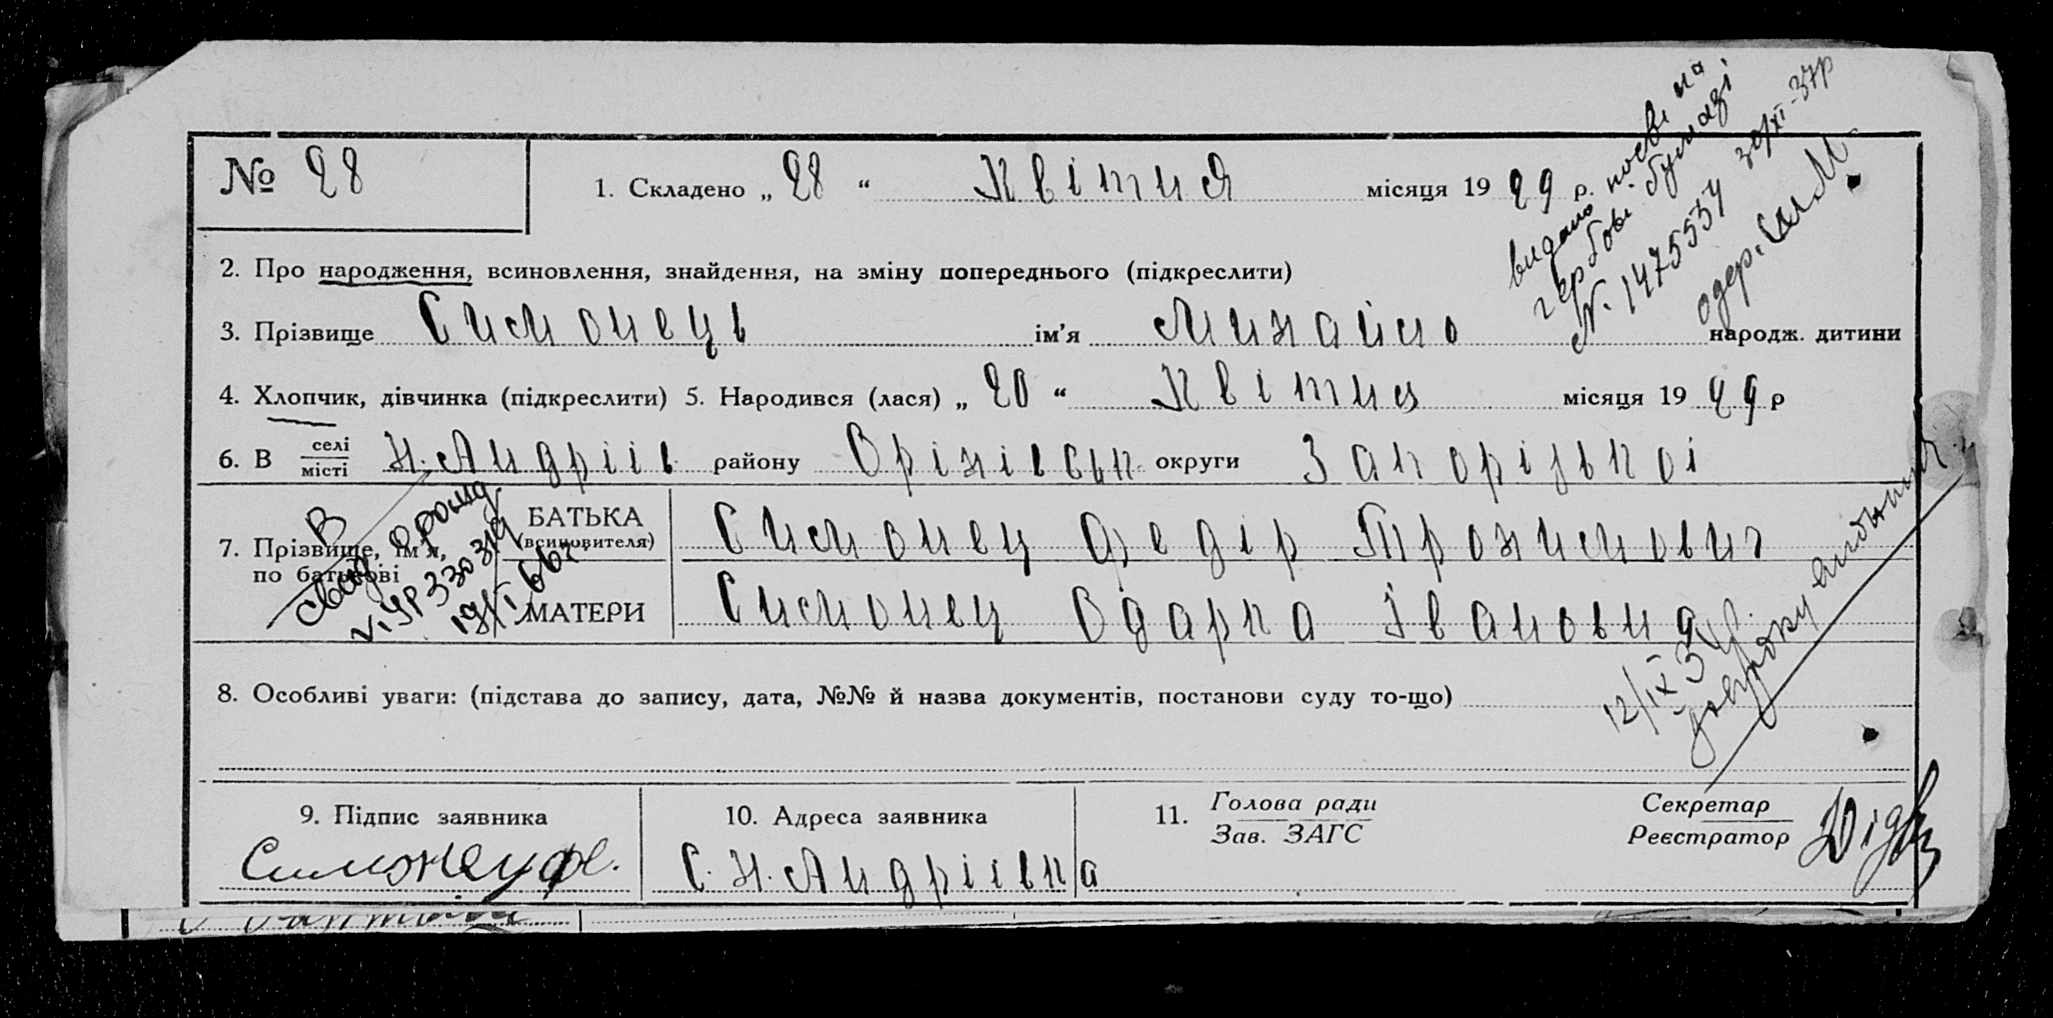 № 28
1. Складено „ 28 “ Квітня місяця 19 29 р.
видано посв. на
гербов. бумазі
N. 1475534 30/XI-37р
одер.
2. Про народження, всиновлення, знайдення, на зміну попереднього (підкреслити)
3. Прізвище Симонець ім'я Михайло народж. дитини
4. Хлопчик, дівчинка (підкреслити) 5. Народився (лася) „ 20 “ Квітня місяця 19 29 р
6. В селі
місті Н. Андріїв району Оріхівськ. округи Запорізької
7. Прізвище, ім'я,
по батькові
БАТЬКА
(всиновителя)
Симонец Федір Трохимович
МАТЕРИ
Симонец Одарка Івановна
12/IX 34р.
довідку видани
8. Особливі уваги: (підстава до запису, дата, №№ й назва документів, постанови суду то-що)
9. Підпис заявника
Симонец Ф.
10. Адреса заявника
С. Н. Андріівка
11. Голова ради
Зав. ЗАГС
Секретар
Реєстратор